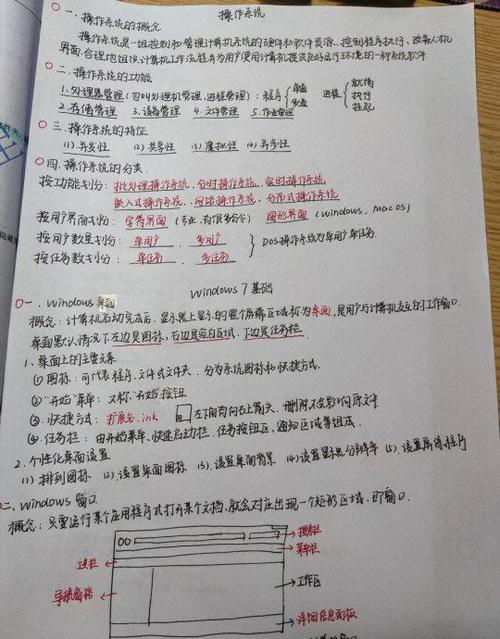 操作系统
一、操作系统的概念
操作系统是一组控制和管理计算机系统的硬件和软件资源、控制程序执行、改善人机
界面、合理地组织计算机工作流程并为用户使用计算机提供良好运行环境的一种系统软件
二、操作系统的功能
1.处理器管理(也叫处理机管理、进程管理):程序{单道 多道 进程{就绪 执行 挂起
2.存储管理 3.设备管理 4.文件管理 5.作业管理
三、操作系统的特征
(1)并发性 (2)共享性 (3)虚拟性 (4)异步性
四、操作系统的分类
按功能划分:批处理操作系统、分时操作系统、实时操作系统
嵌入式操作系统、网络操作系统、分布式操作系统
按用户界面划分:字符界面(专业、有很多命令) 图形界面(windows、mac os)
按用户数量划分:单用户、多用户
按任务数划分:单任务、多任务 } DOS操作系统为单用户单任务.
Windows 7 基础
一、Windows 桌面
概念:计算机启动完成后,显示器上显示的整个屏幕区域称为桌面,是用户与计算机交互的工作窗口.
桌面默认情况下左边是图标,右边是空白区域,下边是任务栏.
1、桌面上的主要元素
①图标:可代表程序、文件或文件夹、分为系统图标和快捷方式.
②"开始"菜单:又称"开始"按钮
③.快捷方式:扩展名.ink 左下角有向右上箭头、删除不会影响原文件
④.任务栏:由开始菜单、快速启动栏、任务按钮区、通知区域等组成.
2.个性化桌面设置
(1)排列图标 (2).设置桌面图标 (3).设置桌面背景 (4)设置显示分辨率 (5).设置屏保程序
二、Windows 窗口
概念:只要运行某个应用程序或打开某个文档,就会对应出现一个矩形区域,即窗口.
搜索栏
菜单栏
工具栏
导航窗格
工作区
详细信息面板